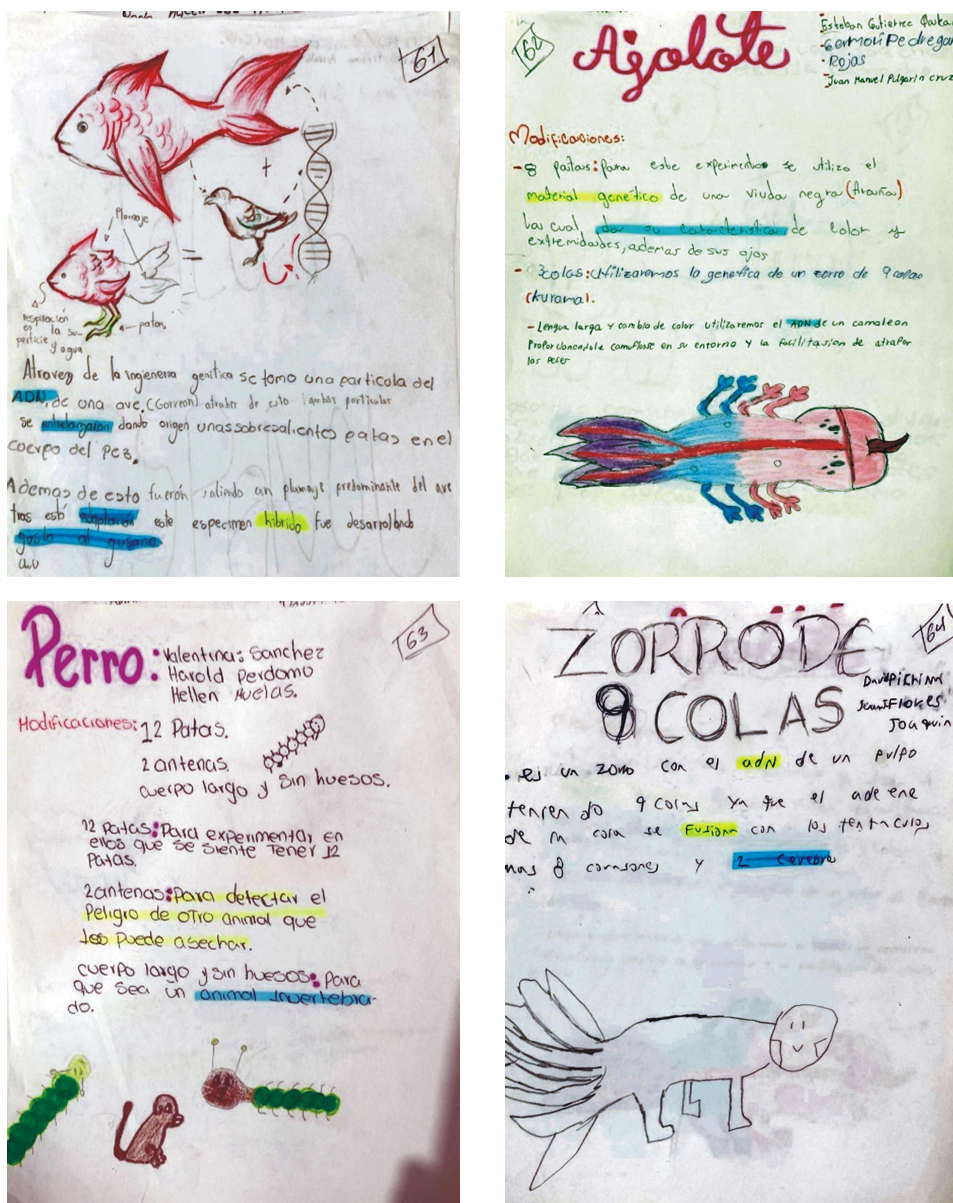 61
Plumaje
+
=
respiración
en la su-
perficie
y agua
patas
Atravez de la ingienería genética se tomo una particola del
ADN, de una ave, (Gorreon) atraber de esto ambas particular
se entrelazaron dando origen unas sobresalientes patas en el
coerpo del Pez.
Ademas de esto fuerón saliendo an plumaje predominante del ave
tras está adaptación este especimen hibrido fue desarrollando
gusto al gusano
62
Ajolote
Esteban Gutierrez
Pedregar
-Rojas
Juan Manuel Pulgarin cruz
Modificaciones:
-8 patas: Para este experimento se utilizo el
material genético de una viuda negra (Araña)
las cual da su caracteristica de color y
extremidades, ademas de sus ojos
- 3 colas: Utilizaremos la genética de un zorro de 9 colas
(kurama).
- Lengua larga y cambio de color utilizaremos el ADN de un camaleon
Proporcionandole camuflase en su entorno y la facilitasion de atrapar
los peces
63
Perro:
Valentina: Sanchez
Harold Perdomo
Hellen Muelas.
Modificaciones: 12 Patas.
2 antenas.
cuerpo largo y sin huesos.
12 patas: Para experimentar en
ellos que se siente tener 12
Patas.
2 antenas: Para detectar el
Peligro de otro animal que
los puede asechar.
cuerpo largo y sin huesos: Para
que sea un animal invertebra-
do.
64
ZORRO DE
9 COLAS
David
Juan Flores
Joaquin
• es un zorro con el adN de un pulpo
teniendo 9 colas ya que el adeene
de la cola se Fusiona con los tentaculos
mas 8 corasones y 2 cerebros